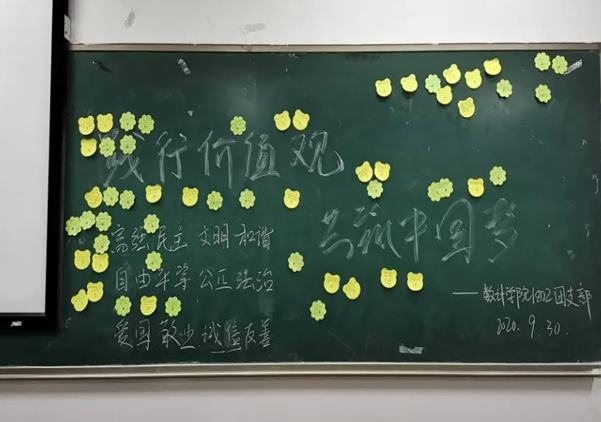 践行价值观
共筑中国梦
富强民主 文明和谐
自由平等 公正法治
爱国敬业 诚信友善
——数计学院1802团支部
2020.9.30.